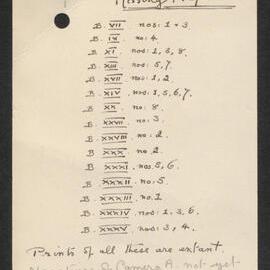 B. VII nos: 1 + 3
B. IX no: 4.
B. XI nos: 1, 3, 8.
B. XIII nos: 5, 7.
B. XVII nos: 1, 2.
B. XIV nos: 1, 5, 6, 7.
B. XX no: 8.
B. XXVII no: 3.
B. XXVIII no: 2.
B. XXX no 2.
B. XXXI nos. 5, 6.
B. XXXII no: 5.
B. XXXIII no. 1
B. XXXIV nos: 1, 3, 6.
B. XXXV nos: 3, 4.
Prints of all these are extant
Camera A. not yet